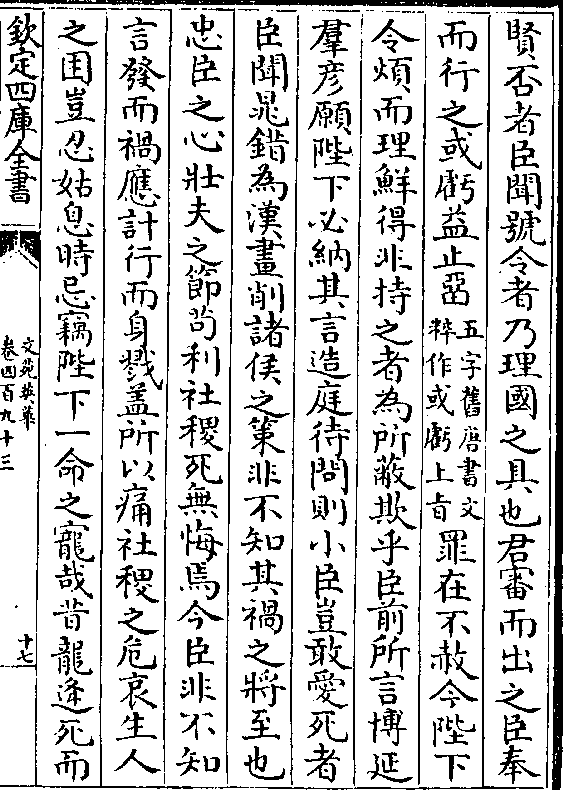 賢否者臣聞號令者乃理國之具也君審而出之臣奉
而行之或虧益止畱五字舊唐書文粹作或虧上旨罪在不赦今陛下
令煩而理鮮得非持之者為所蔽欺乎臣前所言博延
羣彦願陛下必納其言造庭待問則小臣豈敢愛死者
臣聞晁錯為漢畫削諸侯之策非不知其禍之將至也
忠臣之心壯夫之節茍利社稷死無悔焉今臣非不知
言發而禍應計行而身戮盖所以痛社稷之危哀生人
之困豈忍姑息時忌竊陛下一命之寵哉昔龍逄死而
欽定四庫全書
文苑英華
卷四百九十三
十七